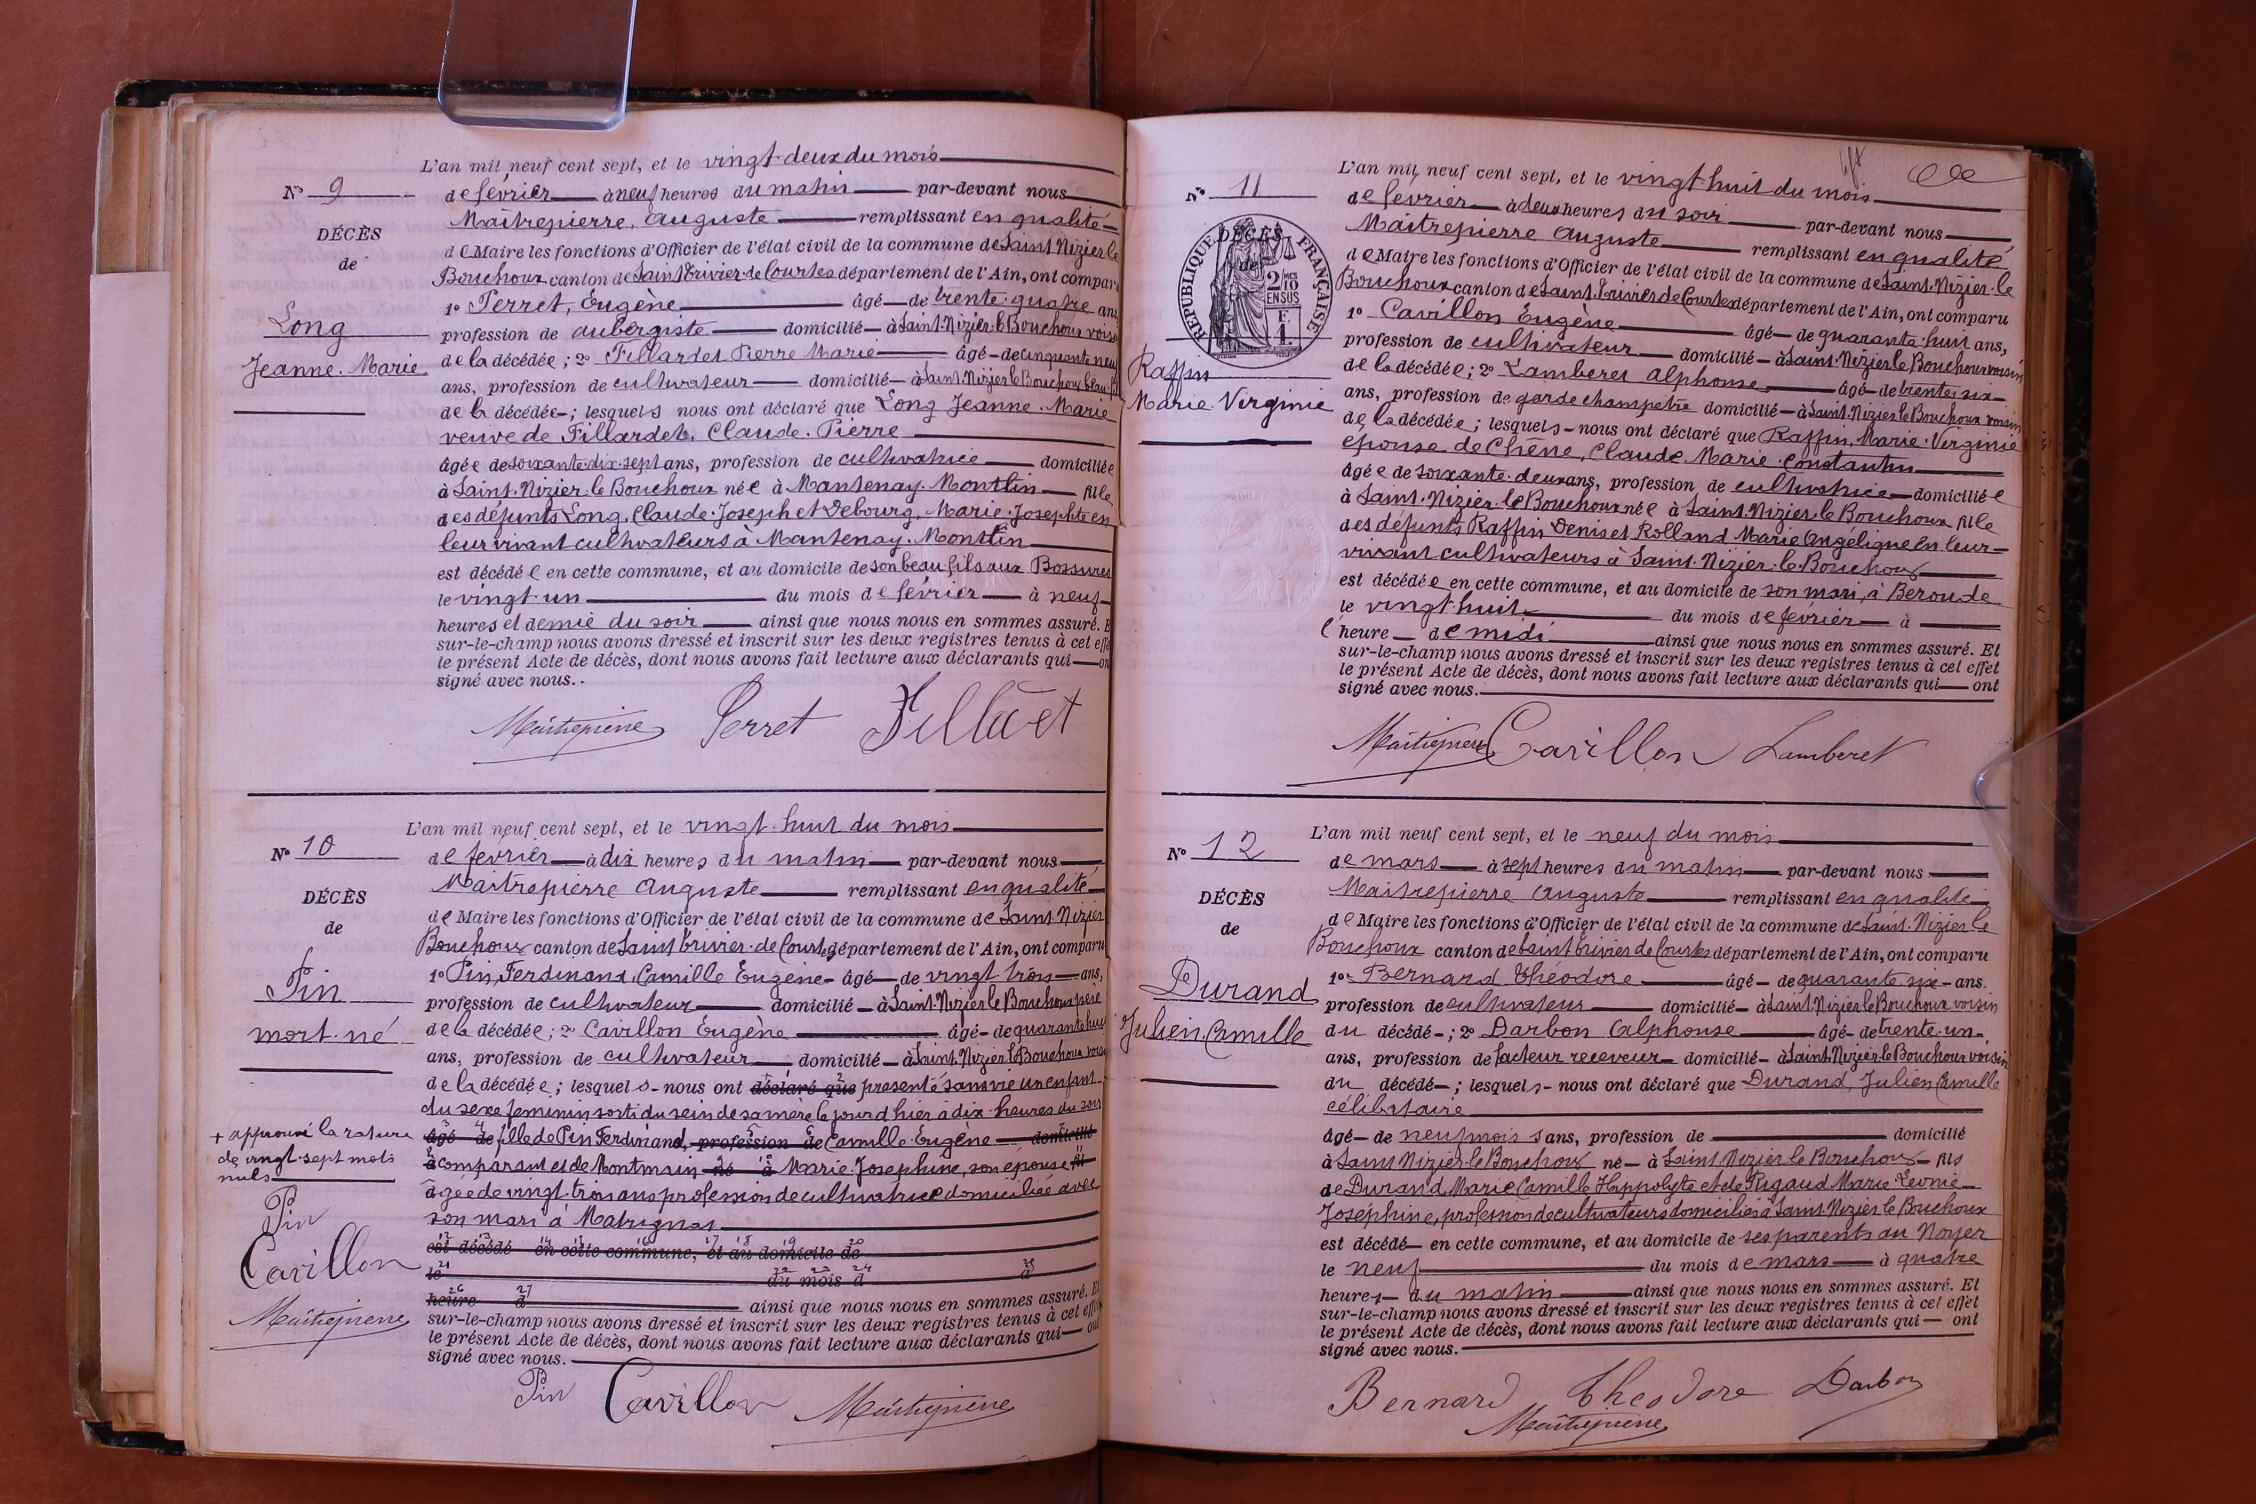 L'an mil neuf cent sept, et le vingt-deux du mois
N° 9
de février à neuf heures du matin par-devant nous
Maîtrepierre, Auguste remplissant en qualité
DÉCÈS
de Maire les fonctions d'Officier de l'état civil de la commune de Saint-Nizier-le
de
Bouchoux canton de Saint-Trivier-de-Courtes département de l'Ain, ont comparu
1° Perret, Eugène âgé de trente-quatre ans
Long
profession de aubergiste domicilié à Saint-Nizier-le-Bouchoux voisin
Jeanne-Marie
de la décédée; 2° Fillardet Pierre Marie âgé de cinquante neuf
ans, profession de cultivateur domicilié à Saint-Nizier le Bouchoux beau-fils
de la décédée; lesquels nous ont déclaré que Long Jeanne-Marie
veuve de Fillardet, Claude-Pierre
âgée de soixante-dix-sept ans, profession de cultivatrice domiciliée
à Saint-Nizier-le-Bouchoux née à Mantenay-Montlin fille
des défunts Long, Claude-Joseph et Debourg, Marie-Josephte en
leur vivant cultivateurs à Mantenay-Montlin
est décédée en cette commune, et au domicile de son beau fils aux Bossures
le vingt-un du mois de février à neuf
heures et demie du soir ainsi que nous nous en sommes assuré. E
sur-le-champ nous avons dressé et inscrit sur les deux registres tenus à cet effe
le présent Acte de décès, dont nous avons fait lecture aux déclarants qui on
signé avec nous.
Maîtrepierre Perret Fillardet
L'an mil neuf cent sept, et le vingt-huit du mois
N° 10
de février à dix heures du matin par-devant nous
Maîtrepierre Auguste remplissant en qualité
DÉCÈS
de Maire les fonctions d'Officier de l'état civil de la commune de Saint-Nizier
de
Bouchoux canton de Saint-Trivier-de-Courtes département de l'Ain, ont comparu
1° Pin, Ferdinand, Camille Eugène âgé de vingt trois ans,
Pin
profession de cultivateur domicilié à Saint-Nizier le Bouchoux père
mort-né
de la décédée; 2° Cavillon Eugène âgé de quarante huit
ans, profession de cultivateur domicilié à Saint-Nizier le Bouchoux voisin
de la décédée; lesquels nous ont déclaré que presenté sans vie un enfant
du sexe feminin sorti du sein de sa mère le jour d'hier à dix-heures du soir
+ approuvé la rature
âgé de fille de Pin Ferdinand, profession de Camille-Eugène domicilié
de vingt-sept mots
à comparant et de Montmain, né à Marie-Josephine, son épouse fil
nuls
âgée de vingt-trois ans profession de cultivatrice domiciliée avec
son mari à Matrignat
Pin
est décédé en cette commune, et au domicile de
Cavillon
le du mois d à
Maîtrepierre
heure d ainsi que nous nous en sommes assuré. Et
sur-le-champ nous avons dressé et inscrit sur les deux registres tenus à cet effet
le présent Acte de décès, dont nous avons fait lecture aux déclarants qui ont
signé avec nous.
Pin Cavillon Maîtrepierre
L'an mil neuf cent sept, et le vingt-huit du mois
N° 11
de février à deux heures du soir par-devant nous
Maîtrepierre Auguste remplissant en qualité
DÉCÈS
de
RÉPUBLIQUE FRANÇAISE
2/10 EN SUS
F. 1.
de Maire les fonctions d'Officier de l'état civil de la commune de Saint-Nizier-le
Bouchoux canton de Saint-Trivier de Courtes département de l'Ain, ont comparu
1° Cavillon Eugène âgé de quarante-huit ans,
profession de cultivateur domicilié à Saint-Nizier le Bouchoux voisin
Raffin
de la décédée; 2° Lamberet Alphonse âgé de trente-six
Marie-Virginie
ans, profession de garde champetre domicilié à Saint-Nizier le Bouchoux voisin
de la décédée; lesquels nous ont déclaré que Raffin, Marie-Virginie
epouse de Chêne, Claude-Marie-Constantin
âgée de soixante-deux ans, profession de cultivatrice domiciliée
à Saint-Nizier-le Bouchoux née à Saint-Nizier-le Bouchoux fille
des défunts Raffin Denis et Rolland Marie Angélique en leur
vivant cultivateurs à Saint-Nizier-le-Bouchoux
est décédée en cette commune, et au domicile de son mari, à Beroude
le vingt-huit du mois de février à
l'heure de midi ainsi que nous nous en sommes assuré. Et
sur-le-champ nous avons dressé et inscrit sur les deux registres tenus à cet effet
le présent Acte de décès, dont nous avons fait lecture aux déclarants qui ont
signé avec nous.
Maîtrepierre Cavillon Lamberet
L'an mil neuf cent sept, et le neuf du mois
N° 12
de mars à sept heures du matin par-devant nous
Maîtrepierre Auguste remplissant en qualité
DÉCÈS
de Maire les fonctions d'Officier de l'état civil de la commune de Saint-Nizier le
de
Bouchoux canton de Saint Trivier de Courtes département de l'Ain, ont comparu
1° Bernard Théodore âgé de quarante-six ans.
Durand
profession de cultivateur domicilié à Saint-Nizier le Bouchoux voisin
Julien Camille
du décédé; 2° Darbon Alphonse âgé de trente-un
ans, profession de facteur receveur domicilié à Saint-Nizier-le Bouchoux voisin
du décédé; lesquels nous ont déclaré que Durand, Julien Camille
célibataire
âgé de neuf mois ans, profession de domicilié
à Saint Nizier-le Bouchoux né à Saint Nizier le Bouchoux fils
de Durand, Marie Camille Hippolyte et de Rigaud Marie Léonie
Joséphine, profession de cultivateurs domiciliés à Saint Nizier le Bouchoux
est décédé en cette commune, et au domicile de ses parents au Noyer
le neuf du mois de mars à quatre
heures du matin ainsi que nous nous en sommes assuré. Et
sur-le-champ nous avons dressé et inscrit sur les deux registres tenus à cet effet
le présent Acte de décès, dont nous avons fait lecture aux déclarants qui ont
signé avec nous.
Bernard Théodore Darbon
Maîtrepierre